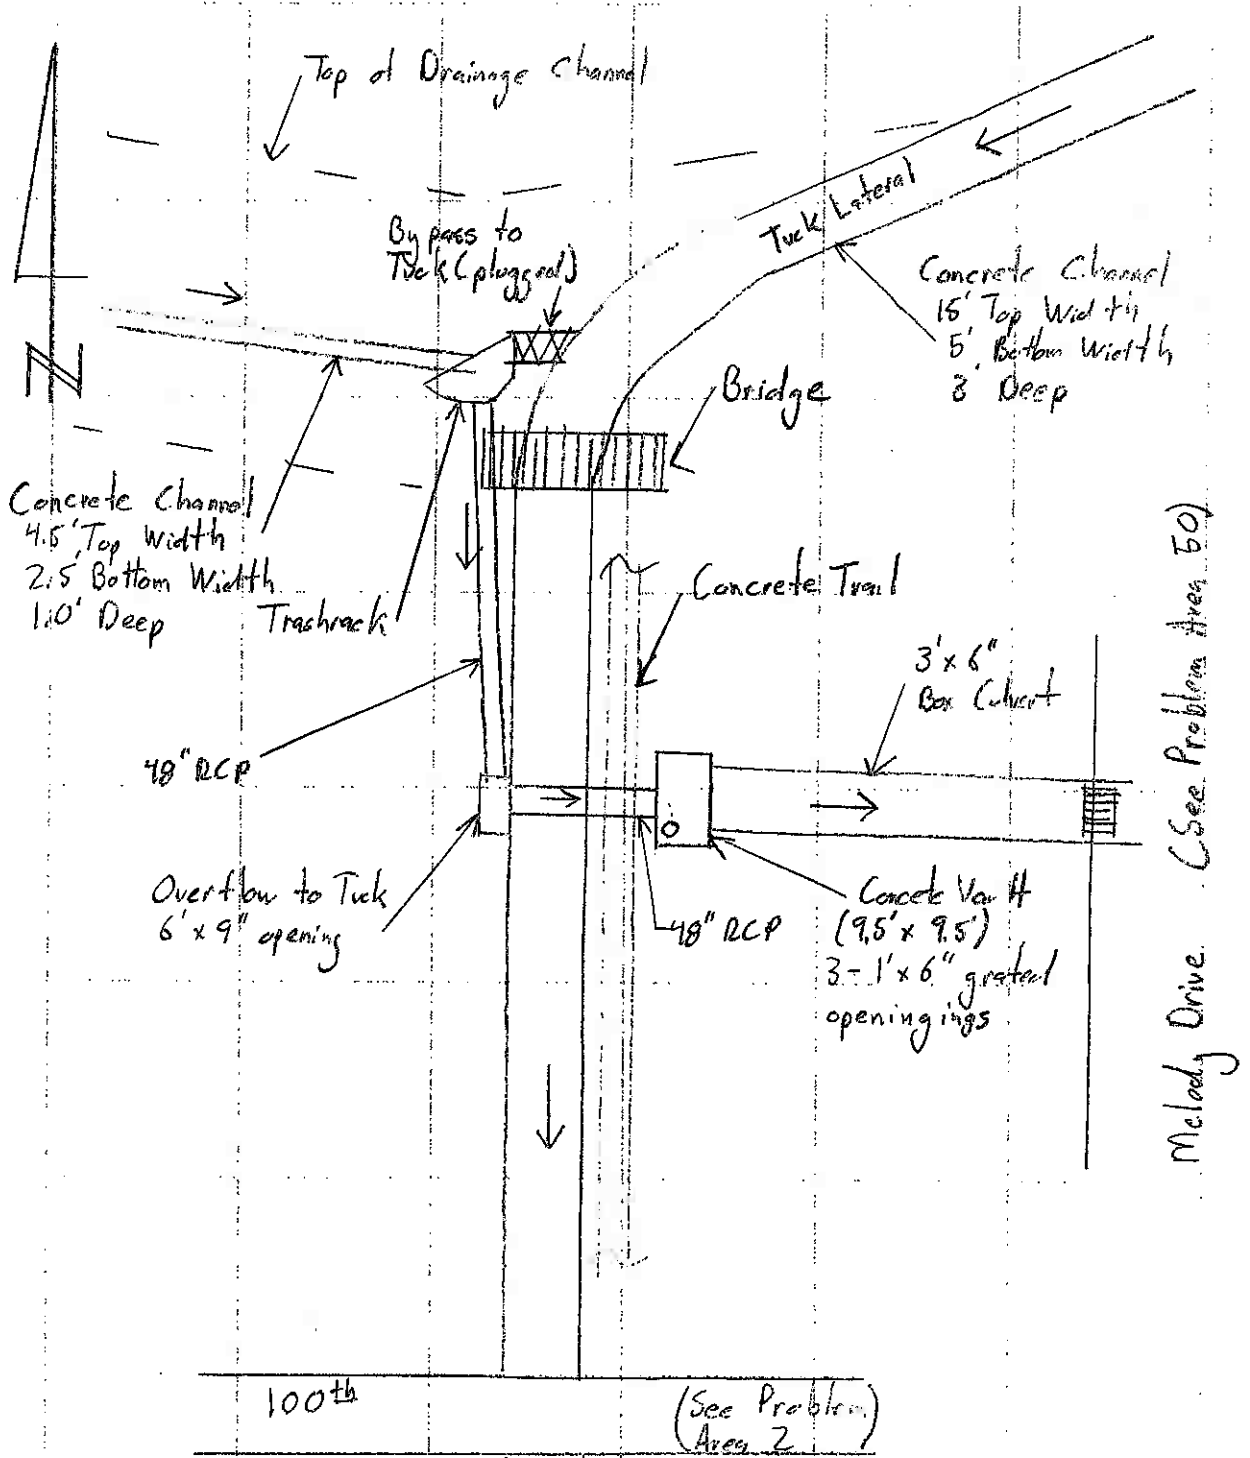 Top of Drainage Channel
Tuck Lateral
By pass to
Tuck (plugged)
Concrete Channel
15' Top Width
5' Bottom Width
3' Deep
N
Bridge
Concrete Channel
4.5' Top Width
2.5' Bottom Width
1.0' Deep
Trashrack
Concrete Trail
3' x 6"
Box Culvert
48" RCP
Overflow to Tuck
6' x 9" opening
48" RCP
Concete Vault
(9.5' x 9.5')
3 - 1' x 6" grated
openingings
Melody Drive (See Problem Area 50)
100th
(See Problem
Area 2